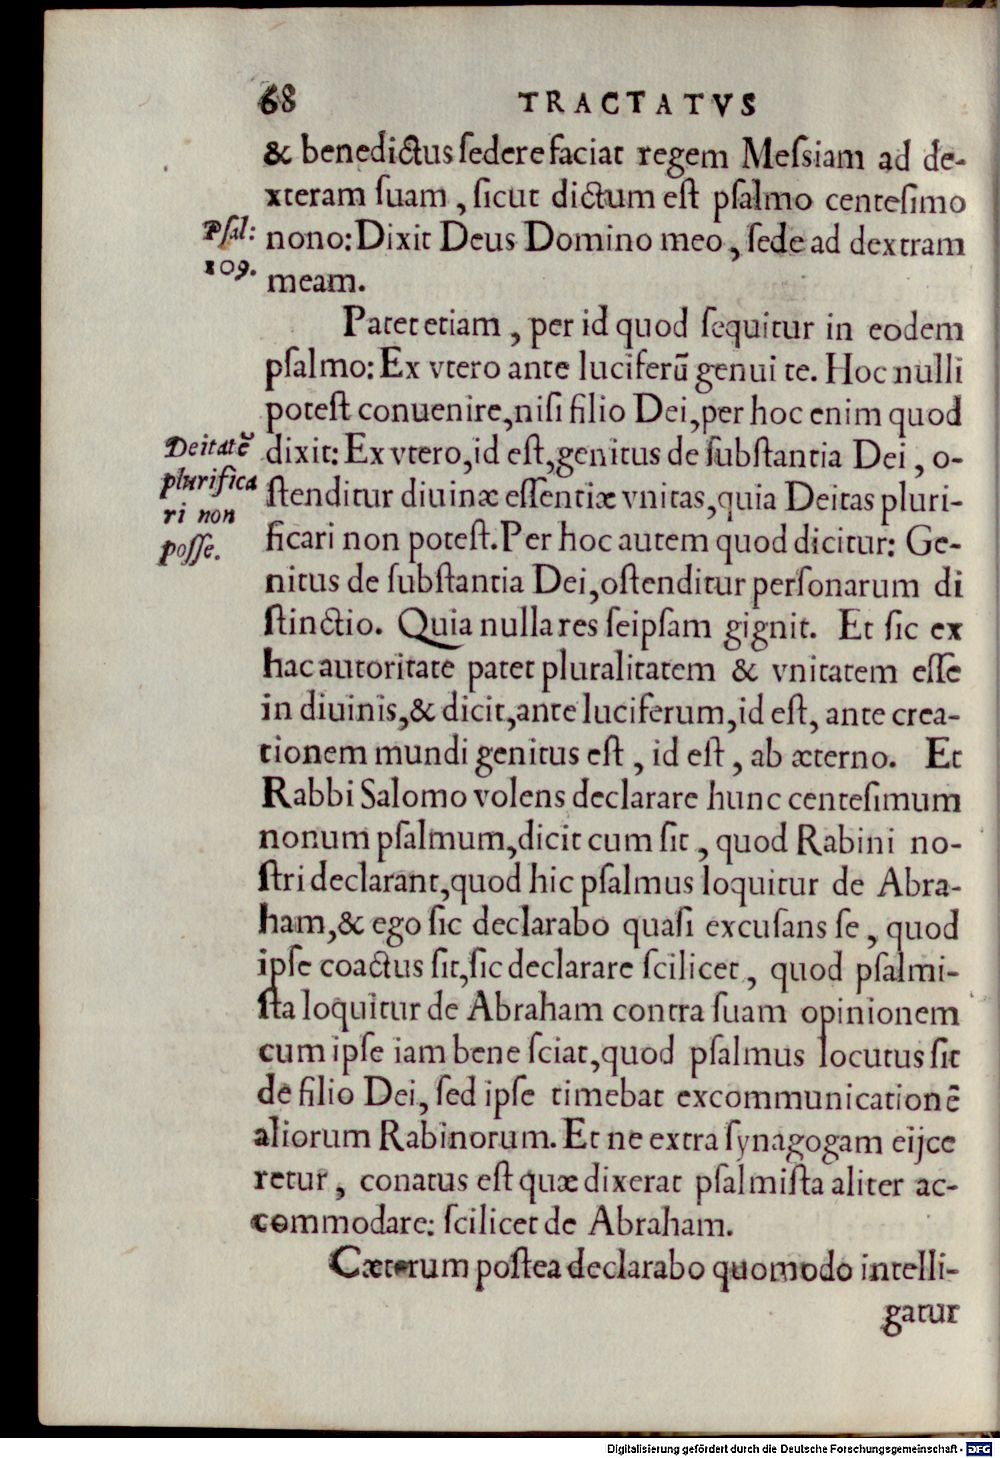 68 TRACTATVS
& benedictus ſedere faciat regem Meſsiam ad de-
xteram ſuam, ſicut dictum eſt pſalmo centeſimo
Pſal: nono: Dixit Deus Domino meo, ſede ad dextram
109. meam.
Patet etiam, per id quod ſequitur in eodem
pſalmo: Ex vtero ante luciferũ genui te. Hoc nulli
poteſt conuenire, niſi filio Dei, per hoc enim quod
Deitatẽ dixit: Ex vtero, id eſt, genitus de ſubſtantia Dei, o-
plurifica ſtenditur diuinæ eſſentiæ vnitas, quia Deitas pluri-
ri non
poſſe. ficari non poteſt. Per hoc autem quod dicitur: Ge-
nitus de ſubſtantia Dei, oſtenditur perſonarum di
ſtinctio. Quia nulla res ſeipſam gignit. Et ſic ex
hac autoritate patet pluralitatem & vnitatem eſſe
in diuinis, & dicit, ante luciferum, id eſt, ante crea-
tionem mundi genitus eſt, id eſt, ab æterno. Et
Rabbi Salomo volens declarare hunc centeſimum
nonum pſalmum, dicit cum ſit, quod Rabini no-
ſtri declarant, quod hic pſalmus loquitur de Abra-
ham, & ego ſic declarabo quaſi excuſans ſe, quod
ipſe coactus ſit, ſic declarare ſcilicet, quod pſalmi-
ſta loquitur de Abraham contra ſuam opinionem
cum ipſe iam bene ſciat, quod pſalmus locutus ſit
de filio Dei, ſed ipſe timebat excommunicationẽ
aliorum Rabinorum. Et ne extra ſynagogam eijce
retur, conatus eſt quæ dixerat pſalmiſta aliter ac-
commodare: ſcilicet de Abraham.
Cæterum poſtea declarabo quomodo intelli-
gatur
Digitalisierung gefördert durch die Deutsche Forschungsgemeinschaft - DFG